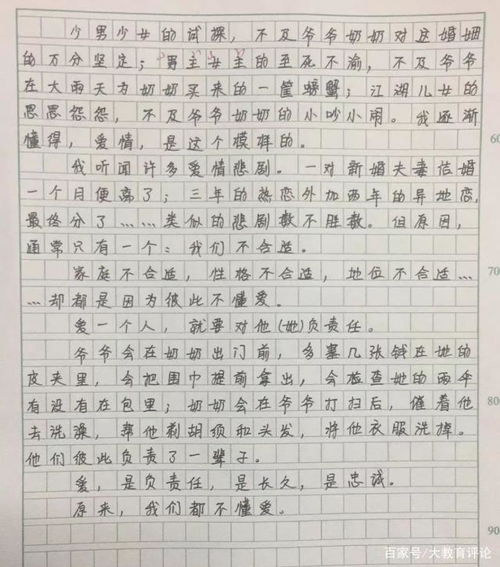 少男少女的试探，不及爷爷奶奶对这婚姻
的万分坚定；男主女主的至死不渝，不及爷爷
在大雨天为奶奶买来的一筐螃蟹；江湖儿女的
恩恩怨怨，不及爷爷奶奶的小吵小闹。我逐渐
懂得，爱情，是这个模样的。
60
我听闻许多爱情悲剧。一对新婚夫妻结婚
一个月便离了；三年的热恋外加两年的异地恋，
最终分了……类似的悲剧数不胜数。但原因，
通常只有一个：我们不合适。
家庭不合适，性格不合适，地位不合适…
70
…却都是因为彼此不懂爱。
爱一个人，就要对他(她)负责任。
爷爷会在奶奶出门前，多塞几张钱在她的
皮夹里，会把围巾提前拿出，会检查她的雨伞
有没有在包里；奶奶会在爷爷打扫后，催着他
800
去洗澡，帮他剃胡须和头发，将他衣服洗掉。
他们彼此负责了一辈子。
爱，是负责任，是长久，是忠诚。
原来，我们都不懂爱。
90
百家号/大教育评论